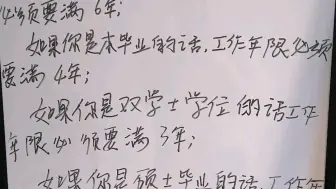 必须要满6年;
如果你是本毕业的话,工作年限必须
要满4年;
如果你是双学士学位的话工作
年限必须要满3年;
如果你是硕士毕业的话,工作年